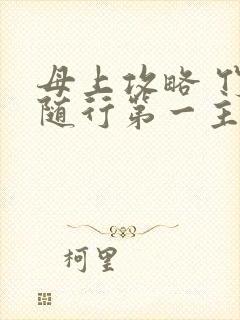 母上攻略
随行第一主
柯里